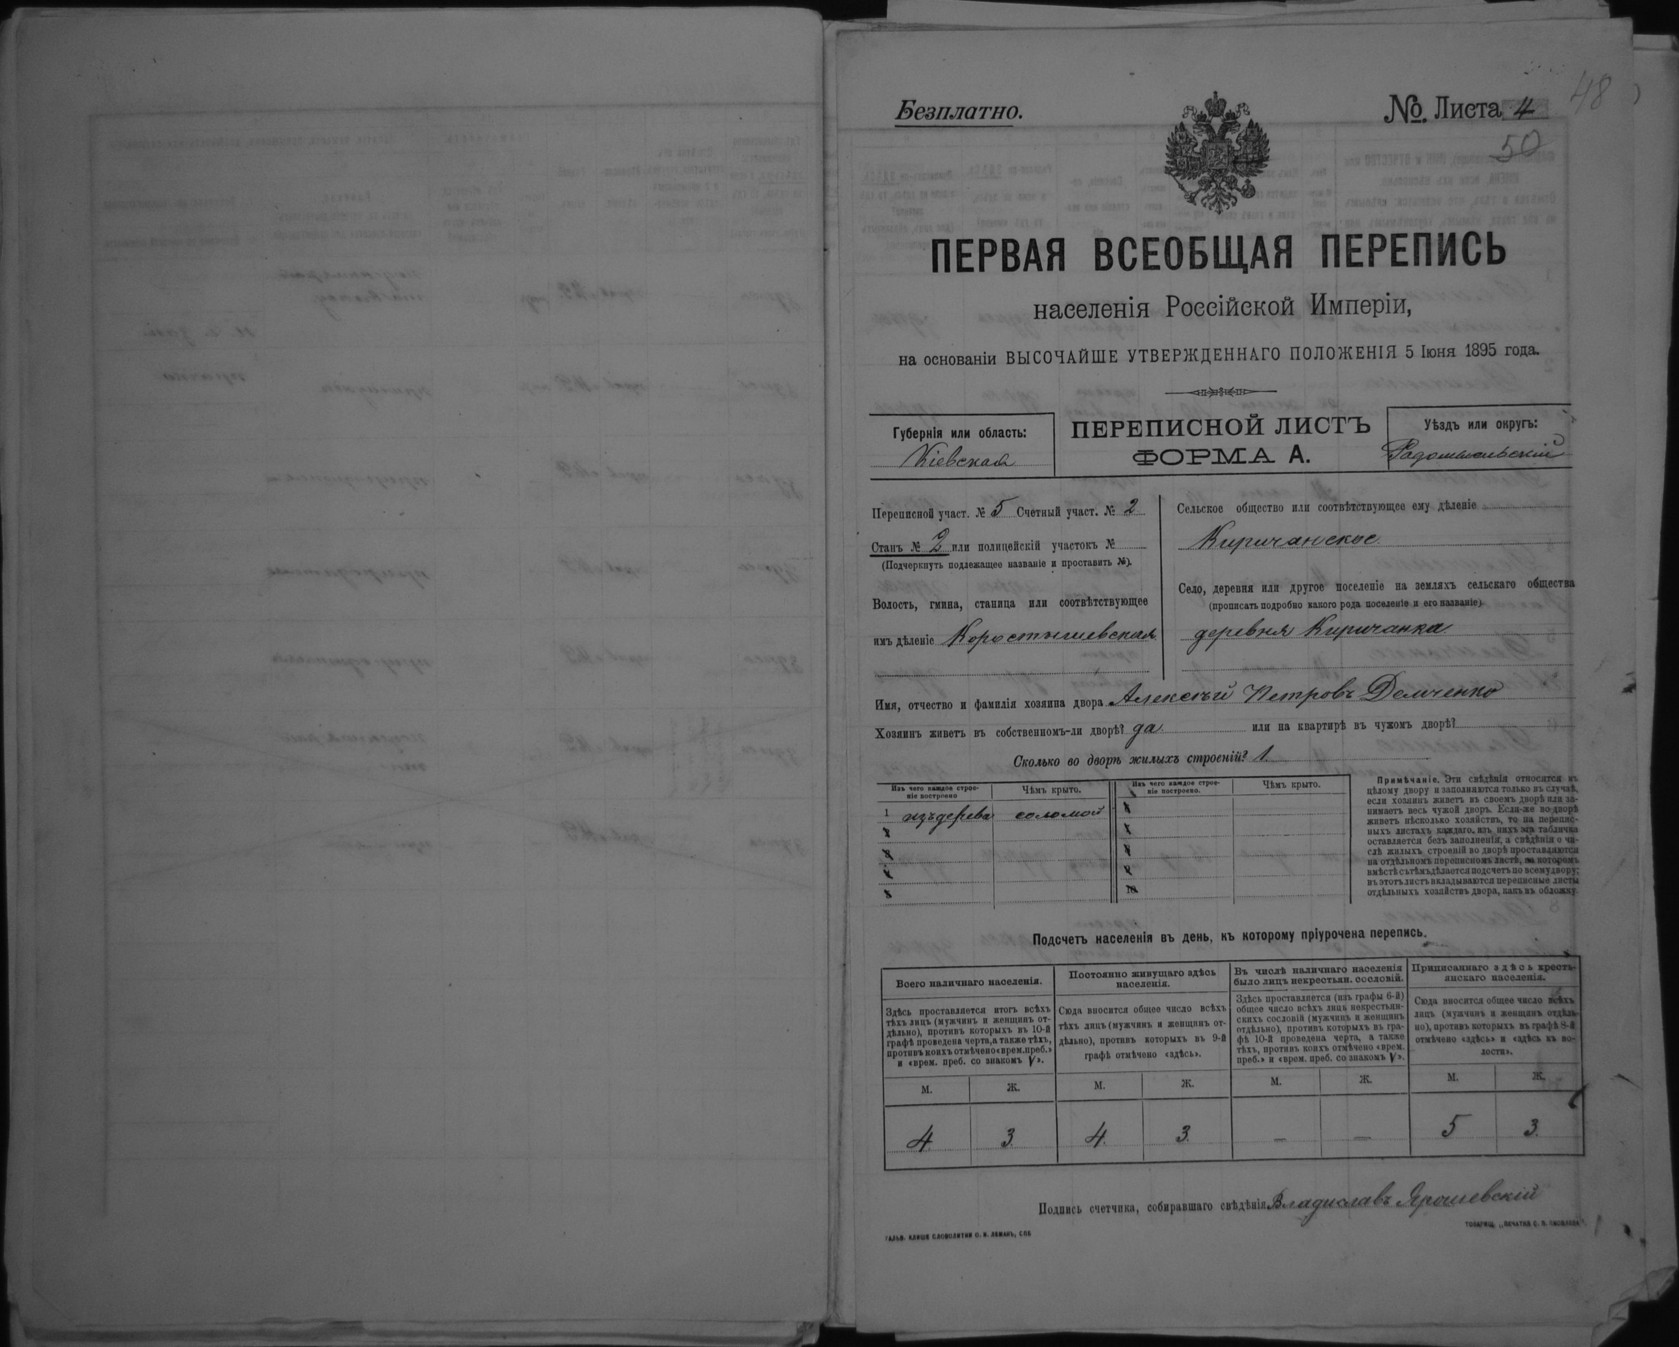 48
Безплатно.
№ Листа 4
50
ПЕРВАЯ ВСЕОБЩАЯ ПЕРЕПИСЬ
населенія Россійской Имперіи,
на основаніи ВЫСОЧАЙШЕ УТВЕРЖДЕННАГО ПОЛОЖЕНІЯ 5 Іюня 1895 года.
Губернія или область:
Кіевская
ПЕРЕПИСНОЙ ЛИСТЪ
ФОРМА А.
Уѣздъ или округъ:
Радомысльскій
Переписной участ. № 5 Счетный участ. № 2
Станъ № 2 или полицейскій участокъ №
(Подчеркнуть подлежащее названіе и проставить №).
Волость, гмина, станица или соотвѣтствующее
имъ дѣленіе Коростышевская
Сельское общество или соотвѣтствующее ему дѣленіе
Киричанское
Село, деревня или другое поселеніе на земляхъ сельскаго общества
(прописать подробно какого рода поселеніе и его названіе)
деревня Киричанка
Имя, отчество и фамилія хозяина двора Алексѣй Петровъ Демченко
Хозяинъ живетъ въ собственномъ-ли дворѣ? да или на квартирѣ въ чужомъ дворѣ?
Сколько во дворѣ жилыхъ строеній? 1.
Изъ чего каждое строе-
ніе построено
Чѣмъ крыто.
Изъ чего каждое строе-
ніе построено.
Чѣмъ крыто.
1 изъ дерева соломой
Примѣчаніе. Эти свѣдѣнія относятся къ
цѣлому двору и заполняются только въ случаѣ,
если хозяинъ живетъ въ своемъ дворѣ или за-
нимаетъ весь чужой дворъ. Если-же во дворѣ
живетъ нѣсколько хозяйствъ, то на перепис-
ныхъ листахъ каждаго изъ нихъ эта табличка
оставляется безъ заполненія, а свѣдѣнія о чи-
слѣ жилыхъ строеній во дворѣ проставляются
на отдѣльномъ переписномъ листѣ, на которомъ
вмѣстѣ съ тѣмъ дѣлается подсчетъ по всему двору;
въ этотъ листъ вкладываются переписные листы
отдѣльныхъ хозяйствъ двора, какъ въ обложку.
Подсчетъ населенія въ день, къ которому пріурочена перепись.
Всего наличнаго населенія.
Здѣсь проставляется итогъ всѣхъ
тѣхъ лицъ (мужчинъ и женщинъ от-
дѣльно), противъ которыхъ въ 10-й
графѣ проведена черта, а также тѣхъ,
противъ коихъ отмѣчено «врем. преб.»
и «врем. преб. со знакомъ V».
М. Ж.
4 3
Постоянно живущаго здѣсь
населенія.
Сюда вносится общее число всѣхъ
тѣхъ лицъ (мужчинъ и женщинъ от-
дѣльно), противъ которыхъ въ 9-й
графѣ отмѣчено «здѣсь».
М. Ж.
4. 3
Въ числѣ наличнаго населенія
было лицъ некрестьян. сословій.
Здѣсь проставляется (изъ графы 6-й)
общее число всѣхъ лицъ некрестьян-
скихъ сословій (мужчинъ и женщинъ
отдѣльно), противъ которыхъ въ гра-
фѣ 10-й проведена черта, а также
тѣхъ, противъ коихъ отмѣчено «врем.
преб.» и «врем. преб. со знакомъ V».
М. Ж.
— —
Приписаннаго здѣсь кресть-
янскаго населенія.
Сюда вносится общее число всѣхъ
лицъ (мужчинъ и женщинъ отдѣль-
но), противъ которыхъ въ графѣ 8-й
отмѣчено «здѣсь» и «здѣсь въ во-
лости».
М. Ж.
5 3
Подпись счетчика, собиравшаго свѣдѣнія Владиславъ Ярошевскій
ГАЛЬВ. КЛИШЕ СЛОВОЛИТНИ О. И. ЛЕМАНЪ, СПБ
ТОВАРИЩ. „ПЕЧАТНЯ С. П. ЯКОВЛЕВА“.